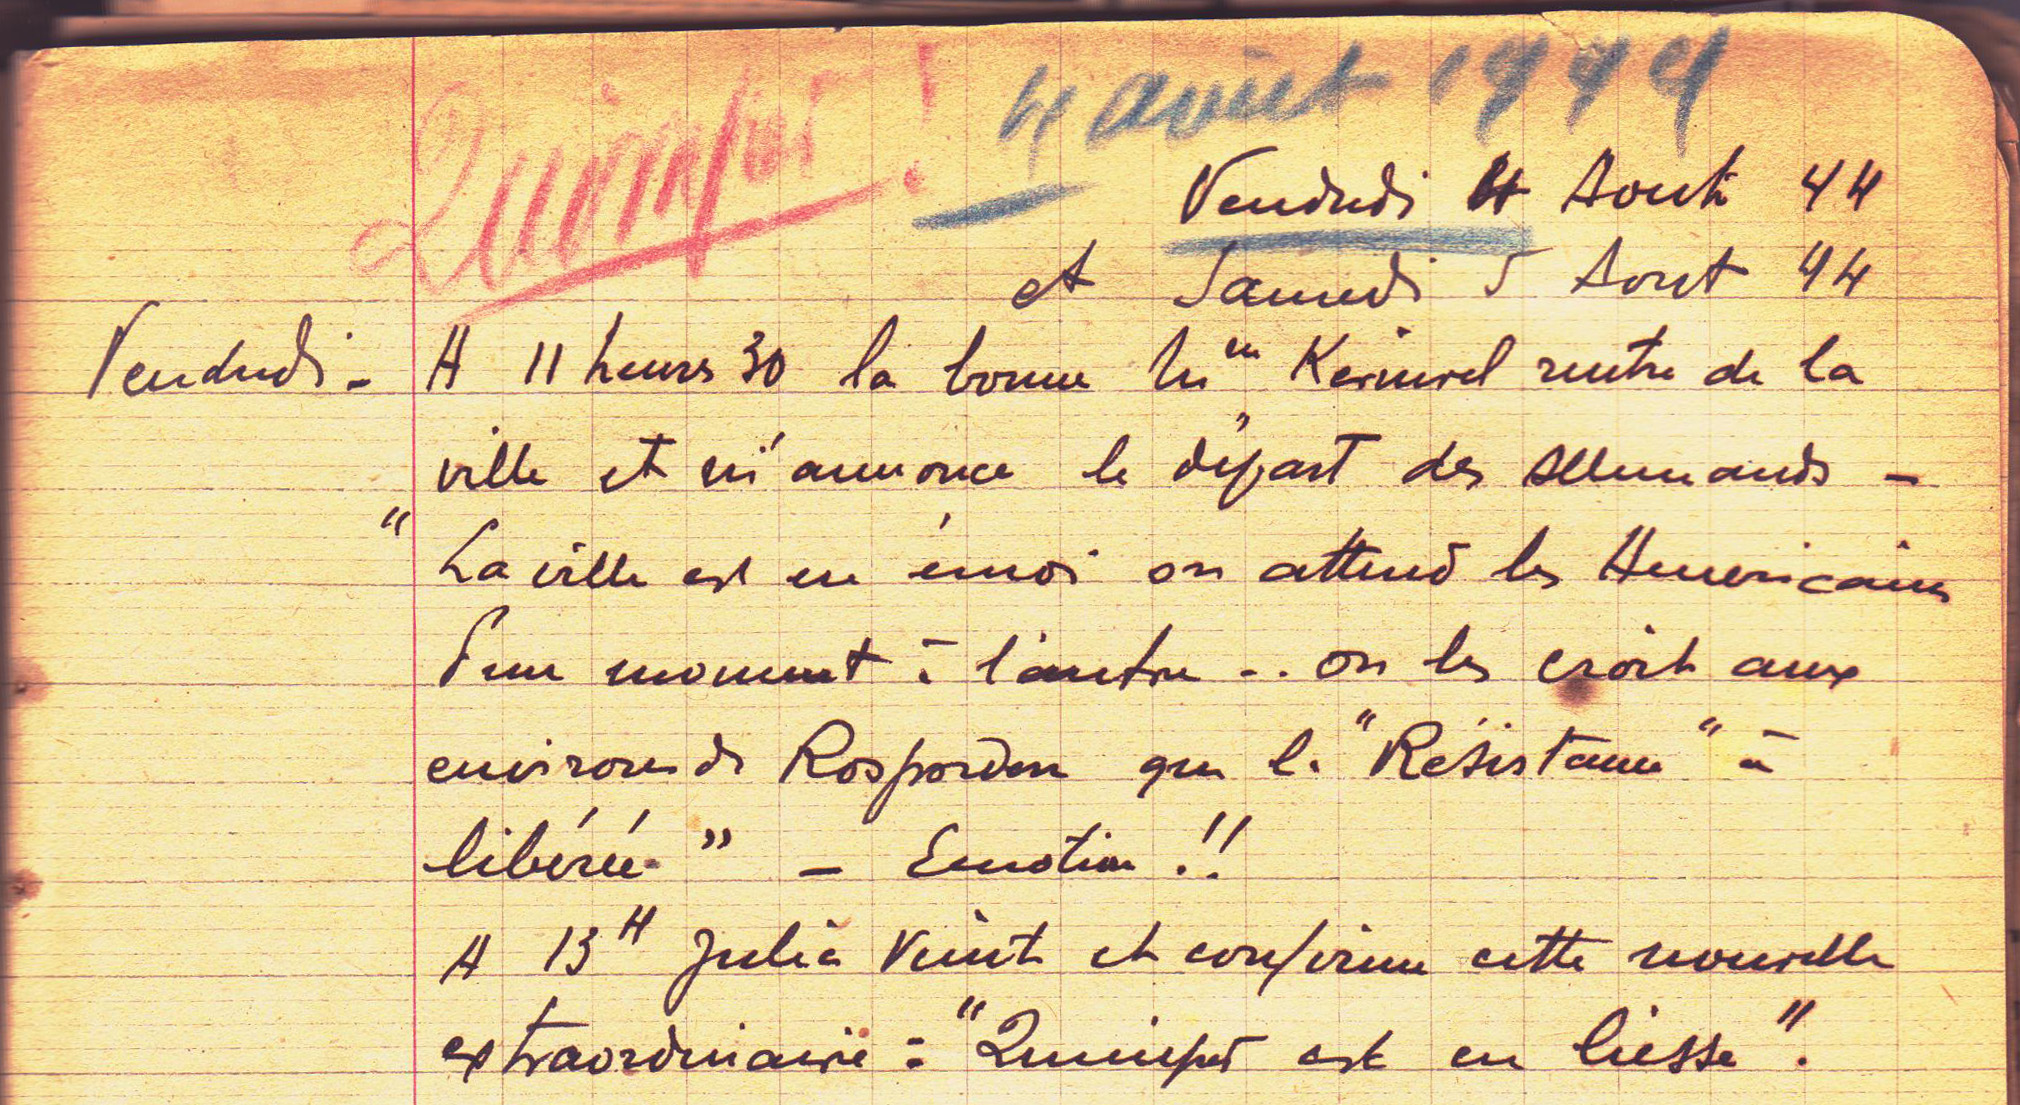 Quimper ! 4 août 1944
Vendredi 4 Aout 44
et Samedi 5 Aout 44
Vendredi - A 11 heures 30 la bonne Mme rentre de la
ville et m'annonce le départ des Allemands -
" La ville est en émoi on attend les Americains
d'un moment à l'autre -.. on les croit aux
environs de Rosporden que la "Résistance" à
libérée " - Emotion !!
A 13H Julia vient et confirme cette nouvelle
extraordinaire : "Quimper est en liesse".